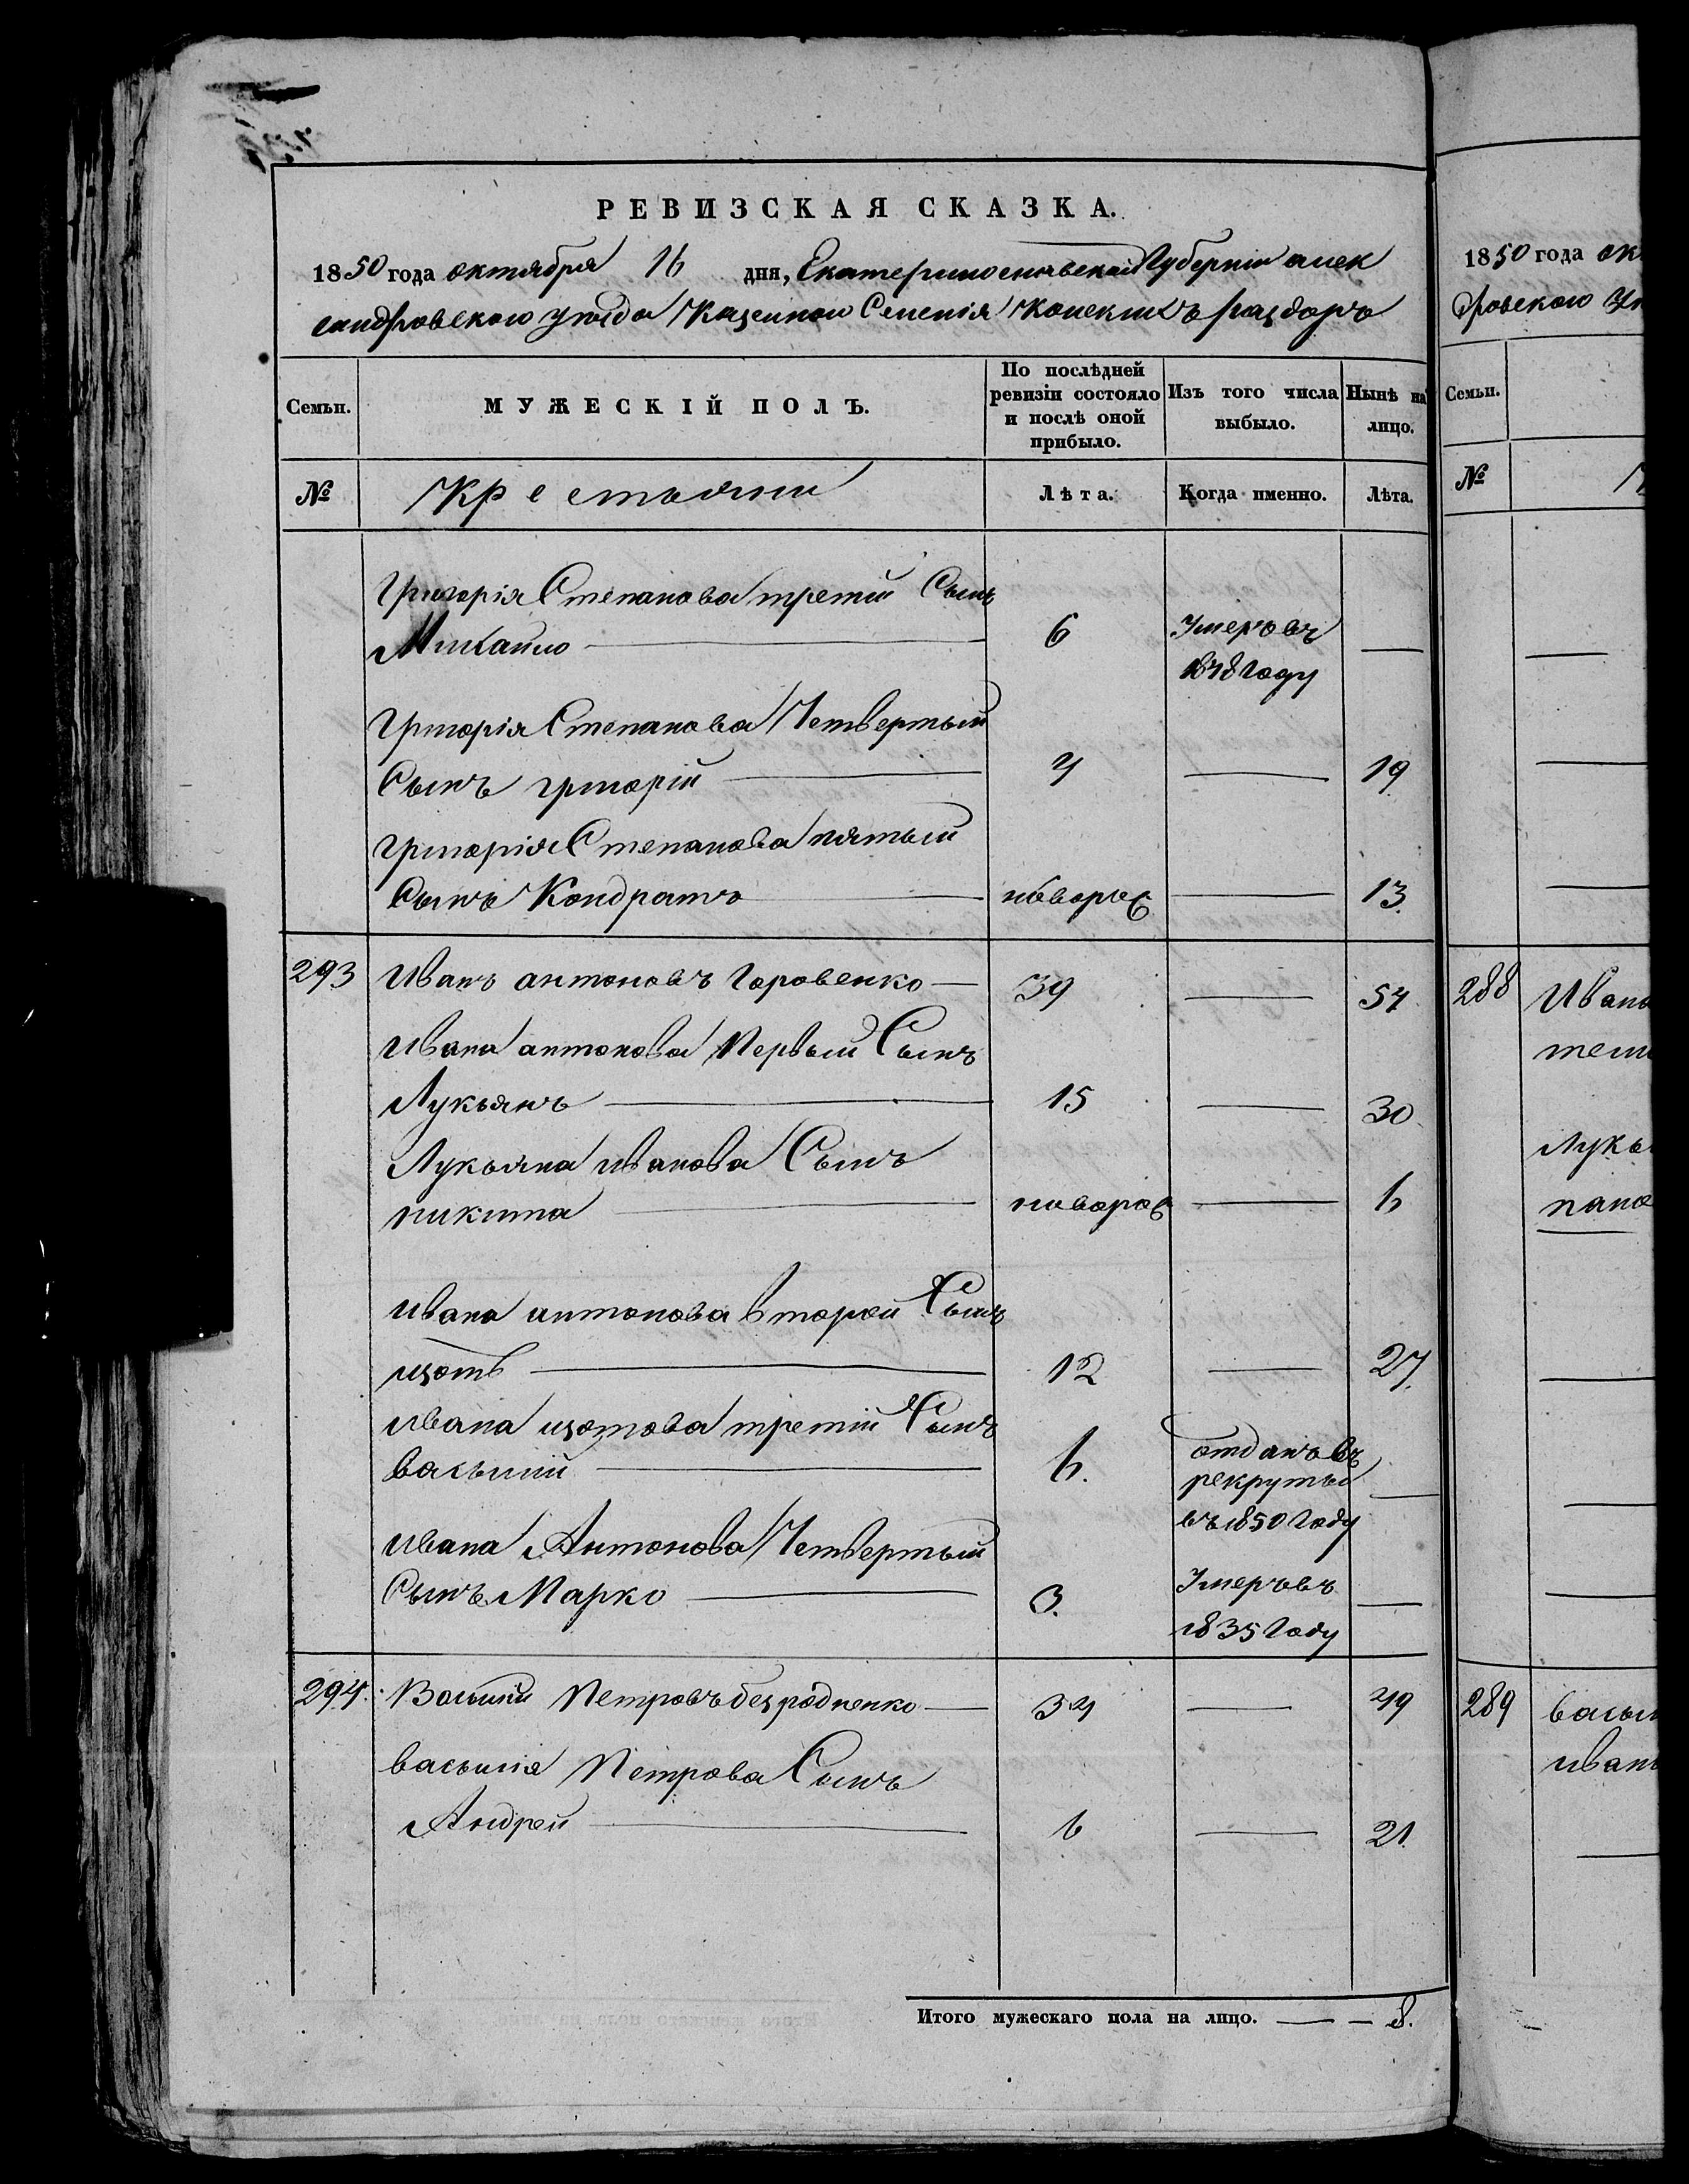 РЕВИЗСКАЯ СКАЗКА.
1850 года октября 16 дня, Екатеринославской Губернии Алек
сандровского уезда Казенного Селения Конских раздоръ
Семьи.
МУЖЕСКІЙ ПОЛЪ.
По послѣдней ревизіи состояло и послѣ оной прибыло.
Изъ того числа выбыло.
Нынѣ на лицо.
№
Крестьяни
Лѣта.
Когда именно.
Лѣта.
Григорія Степанова третий Сынъ
Михайло 6 Умеръ въ —
1848 году
Григорія Степанова Четвертый
Сынъ григорій 4 — 19
Григорія Степанова пятый
Сынъ Кондратъ новорож — 13.
293 Иванъ антоновъ Горовенко — 39 — 54
Ивана антонова Первый Сынъ
Лукьянъ 15 — 30
Лукьяна иванова Сынъ
никита новорож — 6
ивана антонова Второй Сынъ
изотъ 12 — 27.
ивана изотова третій Сынъ
василий 6. отданъ въ
рекруты —
въ 1850 Году
ивана Антонова Четвертый
Сынъ Марко 3. Умеръ въ —
1835 Году
294. Василий Петровъ безродненко — 34 — 49
василія Петрова Сынъ
Андрей 6 — 21.
Итого мужескаго пола на лицо. — — 8.
1850 года ок
ровского уе
Семьи.
№
288 Ивана
Лукь
289 васил
иван